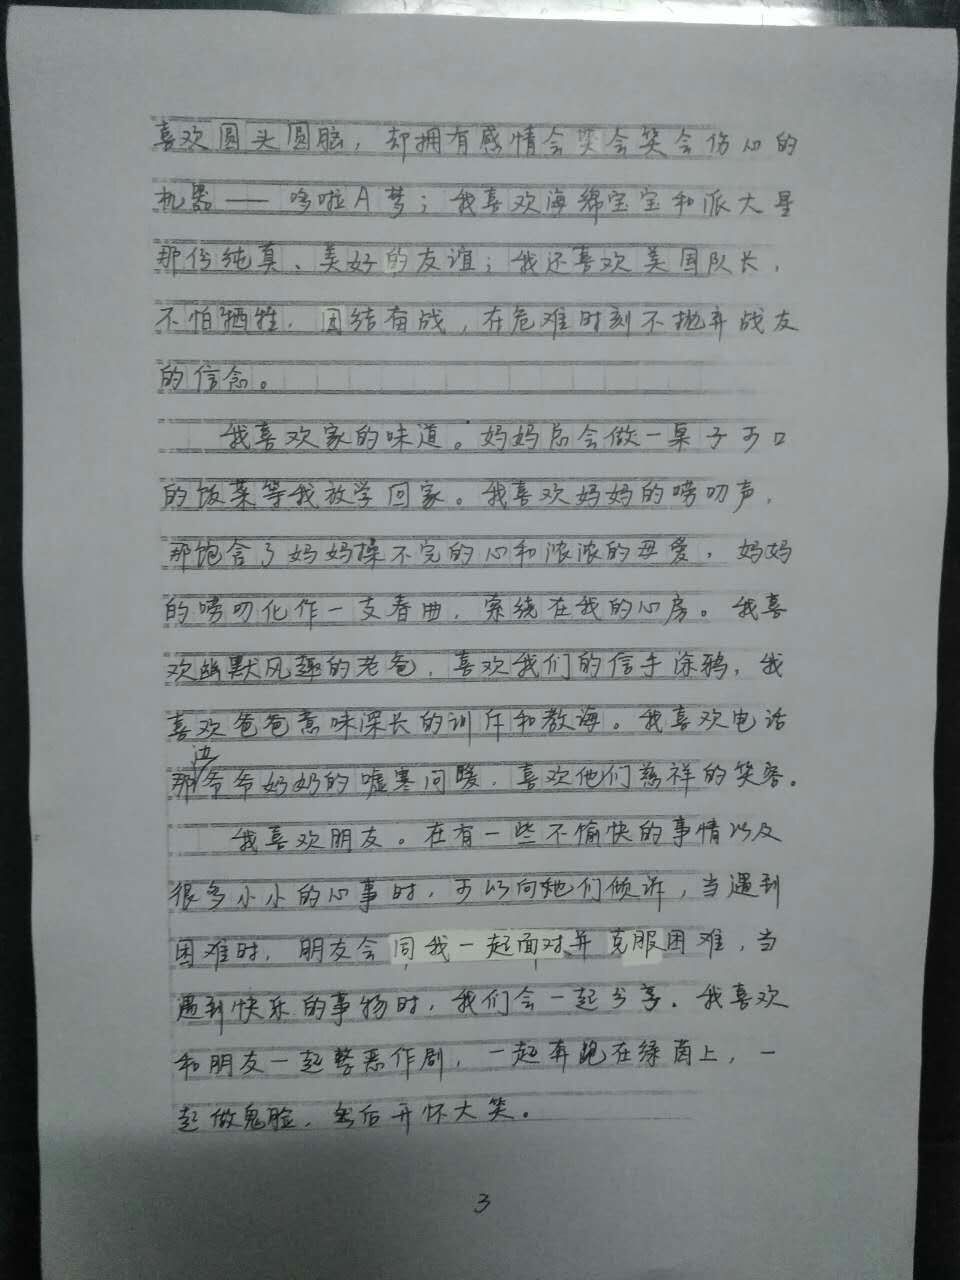 喜欢圆头圆脑，却拥有感情会哭会笑会伤心的
机器——哆啦A梦；我喜欢海绵宝宝和派大星
那份纯真、美好的友谊；我还喜欢美国队长，
不怕牺牲，团结奋战，在危难时刻不抛弃战友
的信念。
我喜欢家的味道。妈妈总会做一桌子可口
的饭菜等我放学回家。我喜欢妈妈的唠叨声，
那饱含了妈妈操不完的心和浓浓的母爱，妈妈
的唠叨化作一支春曲，萦绕在我的心房。我喜
欢幽默风趣的老爸，喜欢我们的信手涂鸦，我
喜欢爸爸意味深长的训斥和教诲。我喜欢电话
那边爷爷奶奶的嘘寒问暖，喜欢他们慈祥的笑容。
我喜欢朋友。在有一些不愉快的事情以及
很多小小的心事时，可以向她们倾诉，当遇到
困难时，朋友会同我一起面对并克服困难，当
遇到快乐的事物时，我们会一起分享。我喜欢
和朋友一起整恶作剧，一起奔跑在绿茵上，一
起做鬼脸，然后开怀大笑。
3